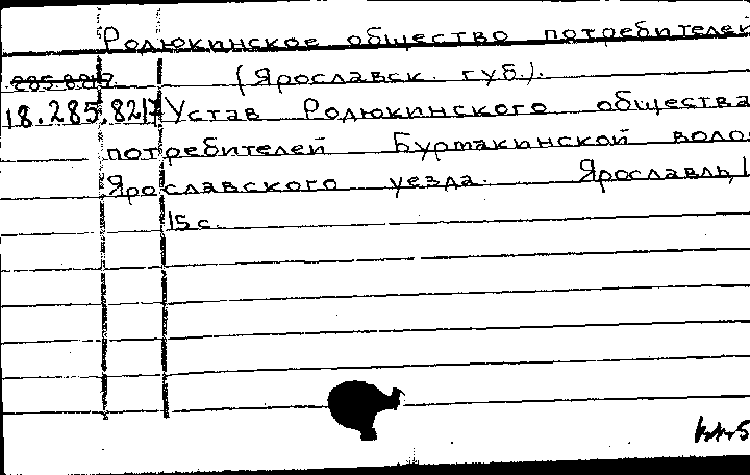 Родюкинское общество потребителей
285.8217 (Ярославск. губ.).
18.285.8217 Устав Родюкинского общества
потребителей Бурмакинской воло
Ярославского уезда. Ярославль, 1
15 с.